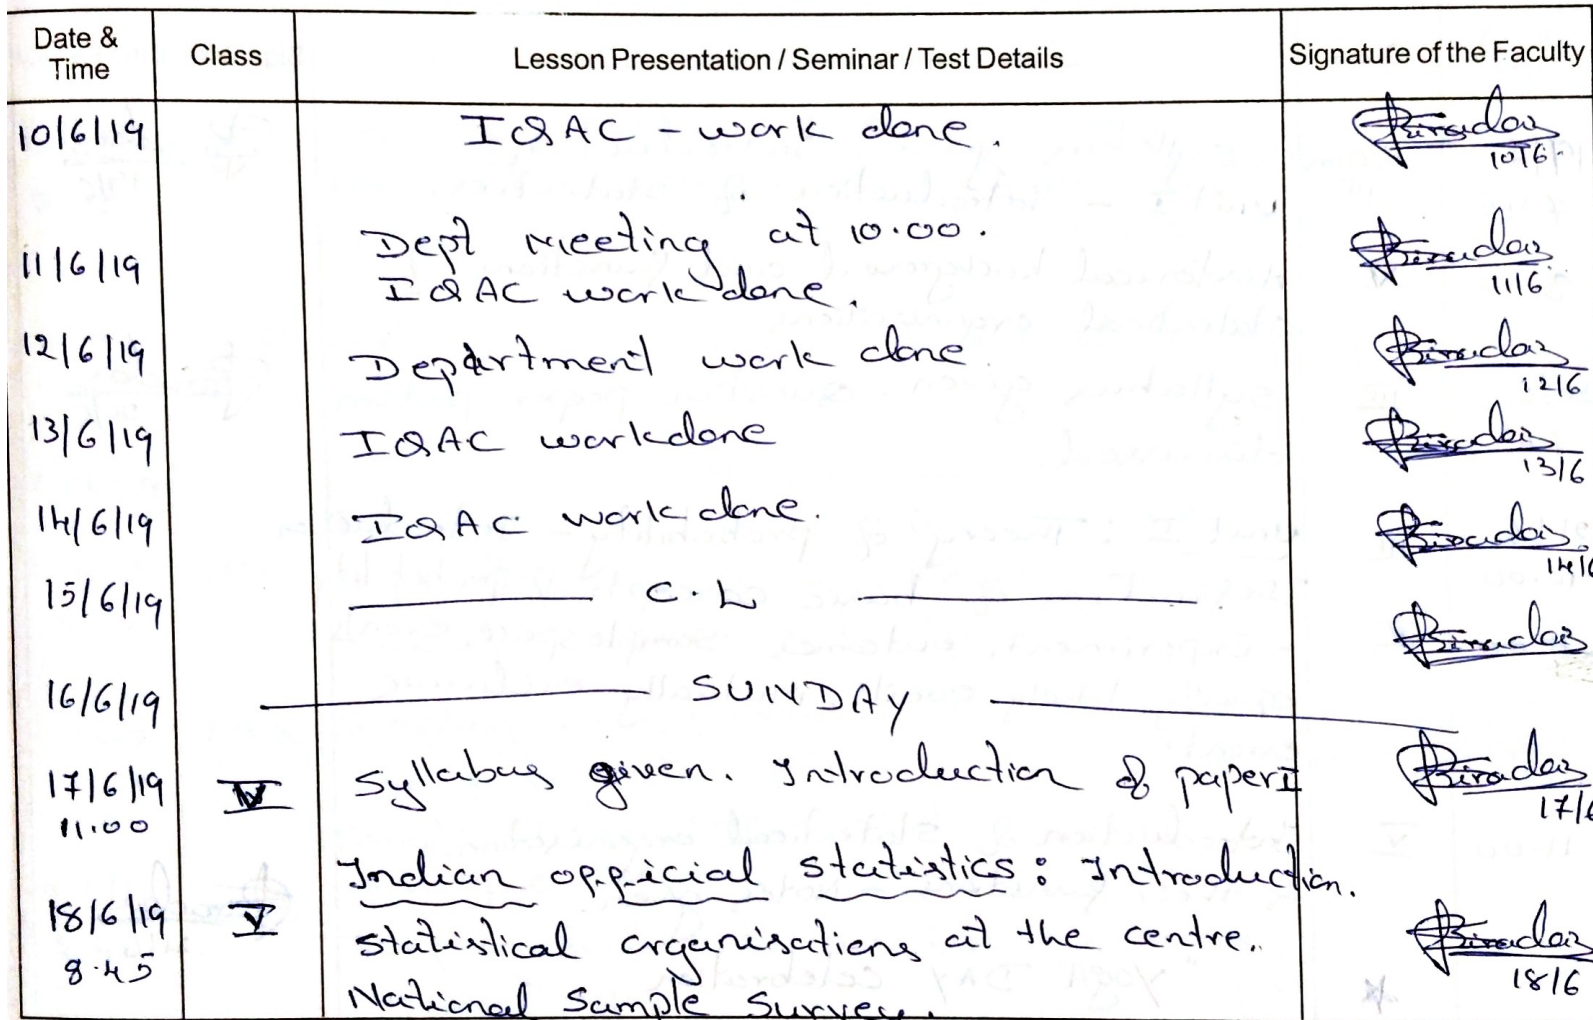 Date & Time Class Lesson Presentation / Seminar / Test Details Signature of the Faculty
10/6/19 IQAC - work done. Biradar 10/6
11/6/19 Dept Meeting at 10.00. Biradar 11/6
IQAC work done.
12/6/19 Department work done Biradar 12/6
13/6/19 IQAC work done Biradar 13/6
14/6/19 IQAC work done. Biradar 14/6
15/6/19 C.L Biradar
16/6/19 SUNDAY
17/6/19 11.00 IV Syllabus given. Introduction of paper I Biradar 17/6
Indian official statistics: Introduction.
18/6/19 8.45 V Statistical organisations at the centre. Biradar 18/6
National Sample Survey.